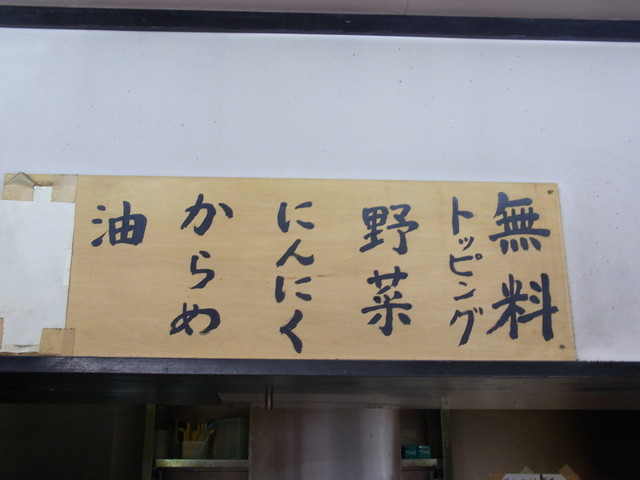 無料
トッピング
野菜
にんにく
からめ
油